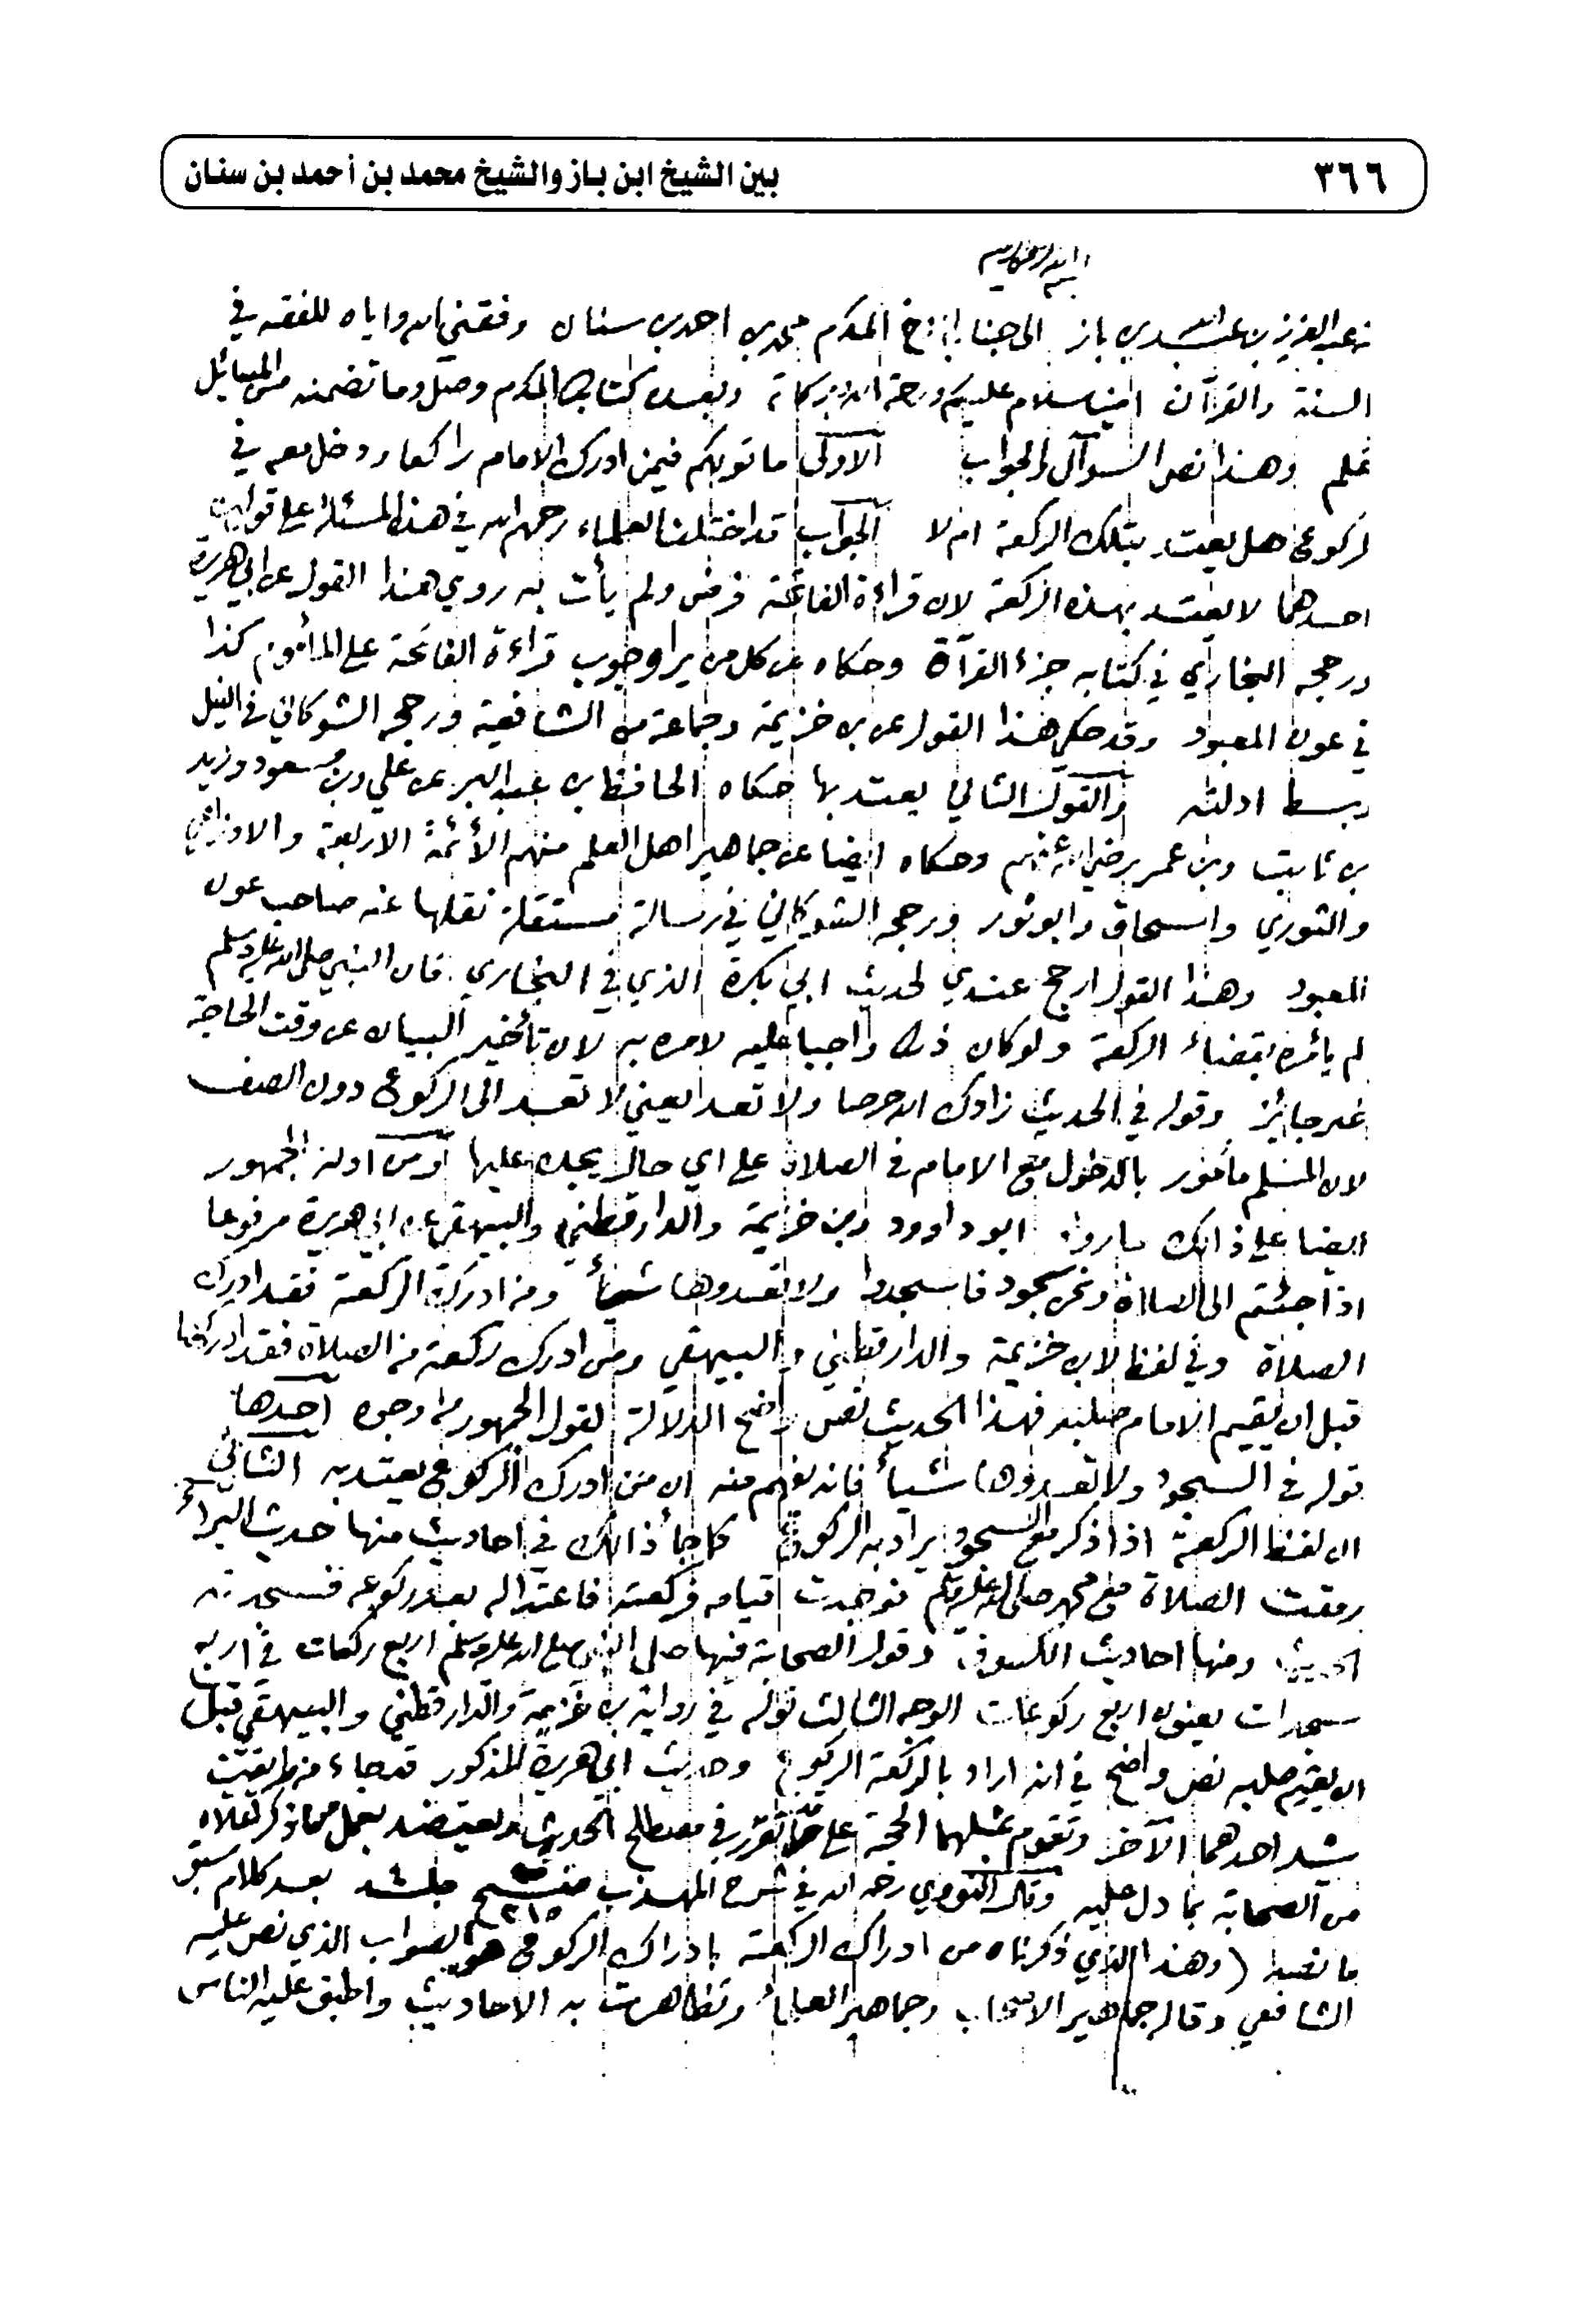 ٣٦٦
بين الشيخ ابن باز والشيخ محمد بن أحمد بن سنان
بسم الله الرحمن الرحيم
من عبد العزيز بن عبد الله بن باز الى جناب الأخ المكرم محمد بن احمد بن سنان وفقني الله واياه للفقه في
السنة والقرآن امين سلام عليكم ورحمة الله وبركاته وبعد كتابكم المكرم وصل وما تضمنه من المسائل
علم وهذا نص السؤال والجواب الاولى ما قولكم فيمن ادرك الامام راكعا ودخل معه في
الركوع هل يعتد بتلك الركعة ام لا الجواب قد اختلف العلماء رحمهم الله في هذه المسئلة على قولين
احدهما لا يعتد بهذه الركعة لان قراءة الفاتحة فرض ولم يأت به روي هذا القول عن ابي هريرة
ورجحه البخاري في كتابه جزء القرآة وحكاه عن كل من يرا وجوب قراءة الفاتحة على المأموم كذا
في عون المعبود وقد حكي هذا القول عن بن خزيمة وجماعة من الشافعية ورجحه الشوكاني في النيل
وبسط ادلته والقول الثاني يعتد بها حكاه الحافظ بن عبد البر عن علي وبن مسعود وزيد
بن ثابت وبن عمر رضي الله عنهم وحكاه ايضا عن جماهير اهل العلم منهم الأئمة الاربعة والاوزاعي
والثوري واسحاق وابو ثور ورجحه الشوكاني في رسالة مستقلة نقلها عنه صاحب عون
المعبود وهذا القول ارجح عندي لحديث ابي بكرة الذي في البخاري فان النبي صلى الله عليه وسلم
لم يأمره بقضاء الركعة ولو كان ذلك واجبا عليه لامره به لان تأخير البيان عن وقت الحاجة
غير جائز وقوله في الحديث زادك الله حرصا ولا تعد يعني لا تعد الى الركوع دون الصف
لان المسلم مأمور بالدخول مع الامام في الصلاة على اي حال يجده عليها ومن ادلة الجمهور
ايضا على ذالك ما رواه ابو داوود وبن خزيمة والدارقطني والبيهقي عن ابي هريرة مرفوعا
اذا جئتم الى الصلاة ونحن سجود فاسجدوا ولا تعدوها شيأ ومن ادرك الركعة فقد ادرك
الصلاة وفي لفظ لابن خزيمة والدارقطني والبيهقي ومن ادرك ركعة من الصلاة فقد ادركها
قبل ان يقيم الامام صلبه فهذا الحديث نص واضح الدلالة لقول الجمهور من وجوه احدها
قوله في السجود ولا تعدوها شيأ فانه يفهم منه ان من ادرك الركوع يعتد به الثاني
ان لفظ الركعة اذا ذكر مع السجود يراد به الركوع كما جأ ذالك في احاديث منها حديث البراء
رمقت الصلاة مع محمد صلى الله عليه وسلم فوجدت قيامه فركعته فاعتداله بعد ركوعه فسجدته
الحديث ومنها احاديث الكسوف وقول الصحابة فيها صلى النبي صلى الله عليه وسلم اربع ركعات في اربع
سجدات يعنون اربع ركوعات الوجه الثالث قوله في رواية بن خزيمة والدارقطني والبيهقي قبل
ان يقيم صلبه نص واضح في انه اراد بالركعة الركوع وحديث ابي هريرة المذكور قد جاء من طريقين
يشد احدهما الآخر وتقوم بمثلهما الحجة على ما تقرر في مصطلح الحديث ويعتضد بعمل من ذكر
من الصحابة بما دل عليه وقال النووي رحمه الله في شرح المهذب ص ٢١٥ ج جلد بعد كلام سبق
ما نصه (وهذا الذي ذكرناه من ادراك الركعة بادراك الركوع هو الصواب الذي نص عليه
الشافعي وقاله جماهير الاصحاب وجماهير العلماء وتظاهرت به الاحاديث واطبق عليه الناس